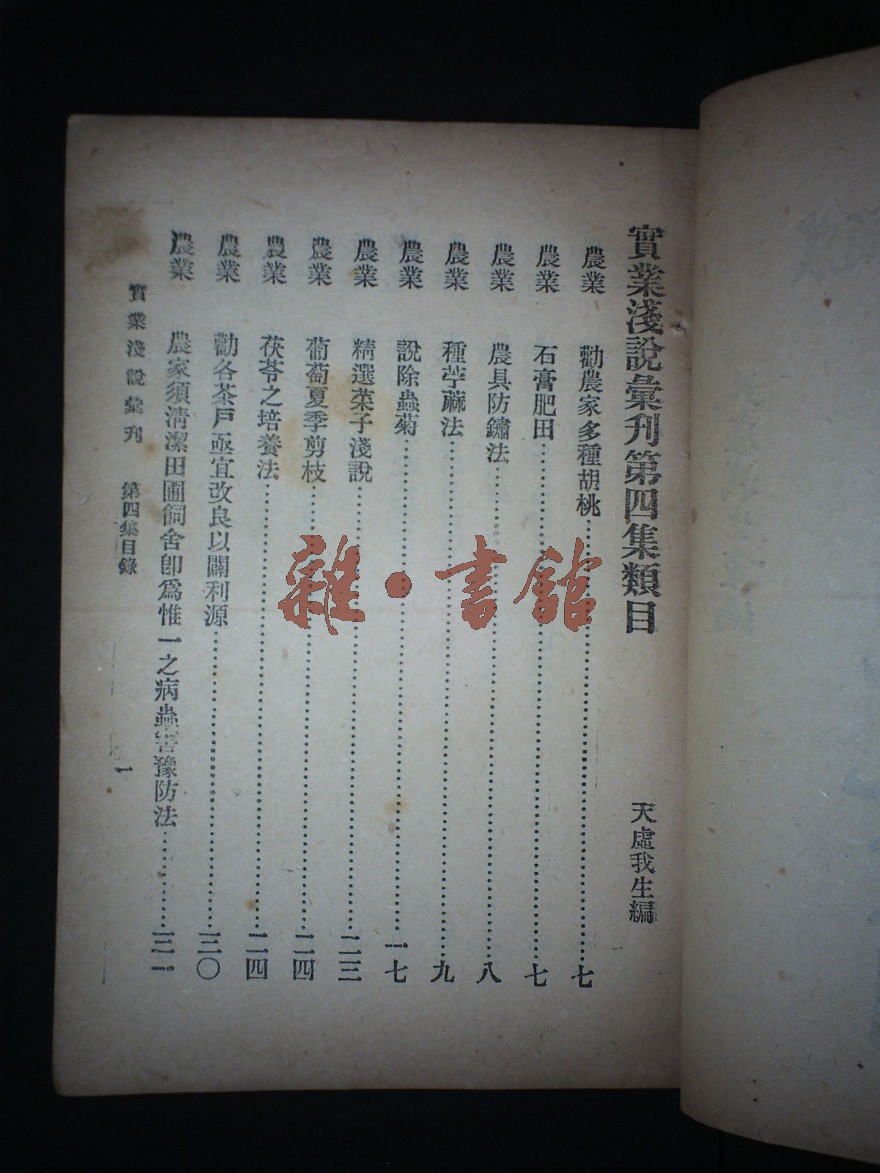 實業淺說彙刊第四集類目
天虛我生編
農業 勸農家多種胡桃……七
農業 石膏肥田……七
農業 農具防鏽法……八
農業 種苧蔴法……九
農業 說除蟲菊……一七
農業 精選菜子淺說……二三
農業 葡萄夏季剪枝……二四
農業 茯苓之培養法……二四
農業 勸各茶戶亟宜改良以闢利源……三〇
農業 農家須清潔田圃飼舍卽爲惟一之病蟲害豫防法……三一
實業淺說彙刊 第四集目錄 一
雜·書館